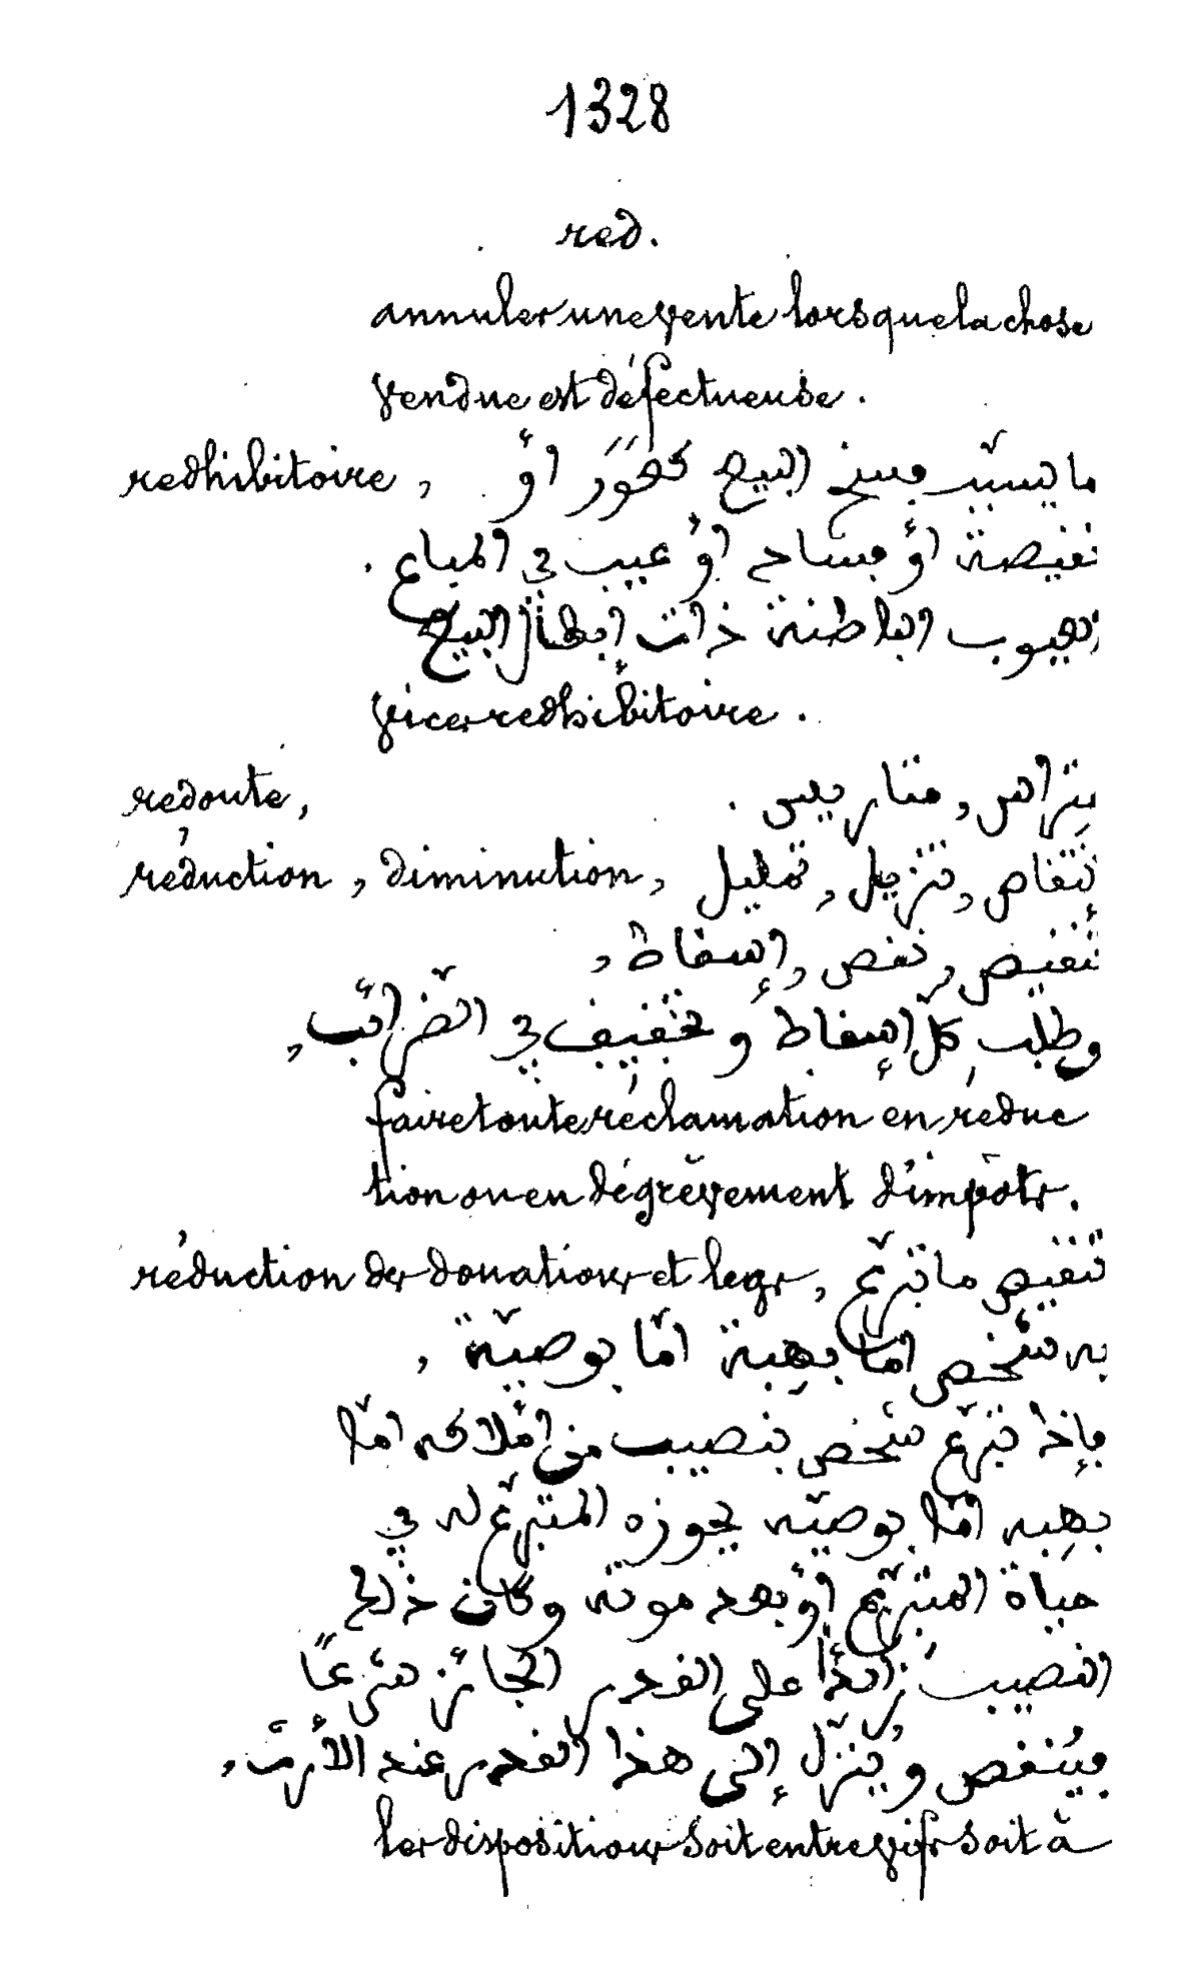 1328
red.
annuler une vente lorsque la chose
vendue est défectueuse.
redhibitoire, ما يسبّب فسخ البيع كعَوَر أوْ
نقيصة أوْ فساد أوْ عيب في المباع.
العيوب الباطنة ذات إبطال البيع
vices redhibitoire.
redoute, بتراس, متاريس.
réduction, diminution, إنتقاص, تنزيل, تقليل,
تنقيص, نقص, إسقاط,
وطلب كلّ إسقاط وتخفيف في الضّرائب,
faire toute réclamation en réduc
tion ou en dégrèvement d'impôts.
réduction des donations et legs, تنقيص ما تبرّع
به شخص امّا بهبة امّا بوصيّة,
فإذا تبرّع شخص بنصيب من أملاكه امّا
بهبه امّا بوصيّه يحوزه المتبرّع له في
حياة المتبرّع أوْ بعد موته وكان ذلك
النصيب زائدًا على القدر الجائز شرعًا
فيُنقص ويُنزّل إلى هذا القدر عند الأرث,
les dispositions soit entre vifs soit à